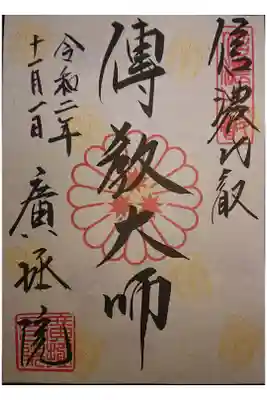 信濃比叡
傳教大師
令和二年
十一月一日
廣拯院